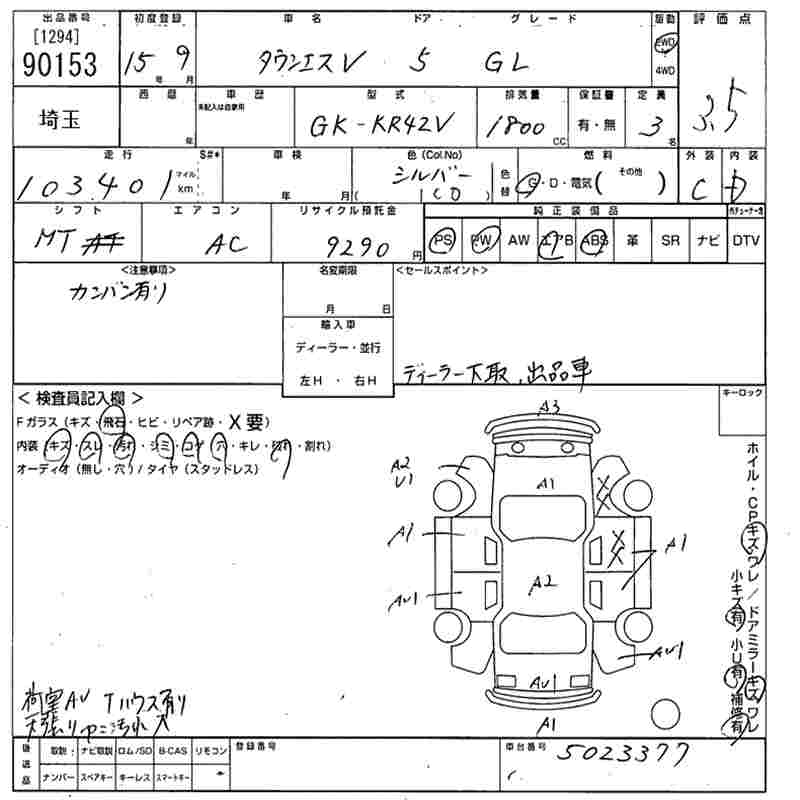 出品番号 初度登録 車名 ドア グレード 駆動 評価点
[1294]
90153 15年 9月 タウンエスV 5 GL 2WD 4WD 3.5
埼玉 西暦 年 車歴 型式 排気量 保証書 定員
未記入は自家用
GK-KR42V 1800cc 有・無 3名
走行 S#* 車検 色(Col.No) 燃料 外装 内装
103401 マイル km 年 月 シルバー ( ) 色替 G・D・電気( その他 ) C D
シフト エアコン リサイクル預託金 純正装備品 地デジチューナー
MT AC 9290円 PS PW AW エアB ABS 革 SR ナビ DTV
<注意事項> 名変期限 <セールスポイント>
カンバン有り
月 日
輸入車
ディーラー・並行
左H ・ 右H
ディーラー下取、出品車
<検査員記入欄> キーロック
Fガラス(キズ・飛石・ヒビ・リペア跡・X要)
内装(キズ・スレ・汚れ・シミ・コゲ・穴・キレ・切れ・割れ)
オーディオ(無し・穴)/タイヤ(スタッドレス)
A3
A2
U1
A1
A1
A1
AU1
A2
AU1
AU1
A1
ホイル・CPキズ・ワレ/ドアミラーキズ・ワレ
小キズ有 小U有 補修有
荷室AU Tハウス有り
天張りヤニ汚れ 穴
後送品 取説 ナビ取説 ロム/SD B-CAS リモコン 登録番号 車台番号
5023377
ナンバー スペアキー キーレス スマートキー